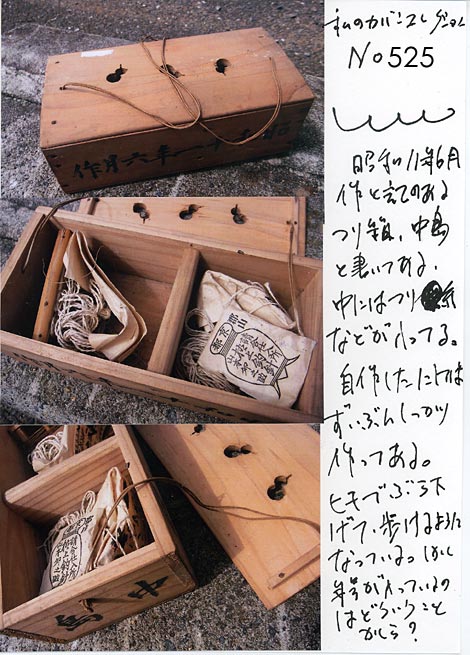 私のカバン コレクション
No525
昭和11年6月
作と記のある
つり箱、中島
と書いてある、
中にはつり糸
などが入ってる。
自作したにしては
ずいぶんしっかり
作ってある。
ヒモでぶら下
げて、歩けるように
なっている。しかし
年号が入っているの
はどういうこと
かしら?
昭和十一年六月作
中島